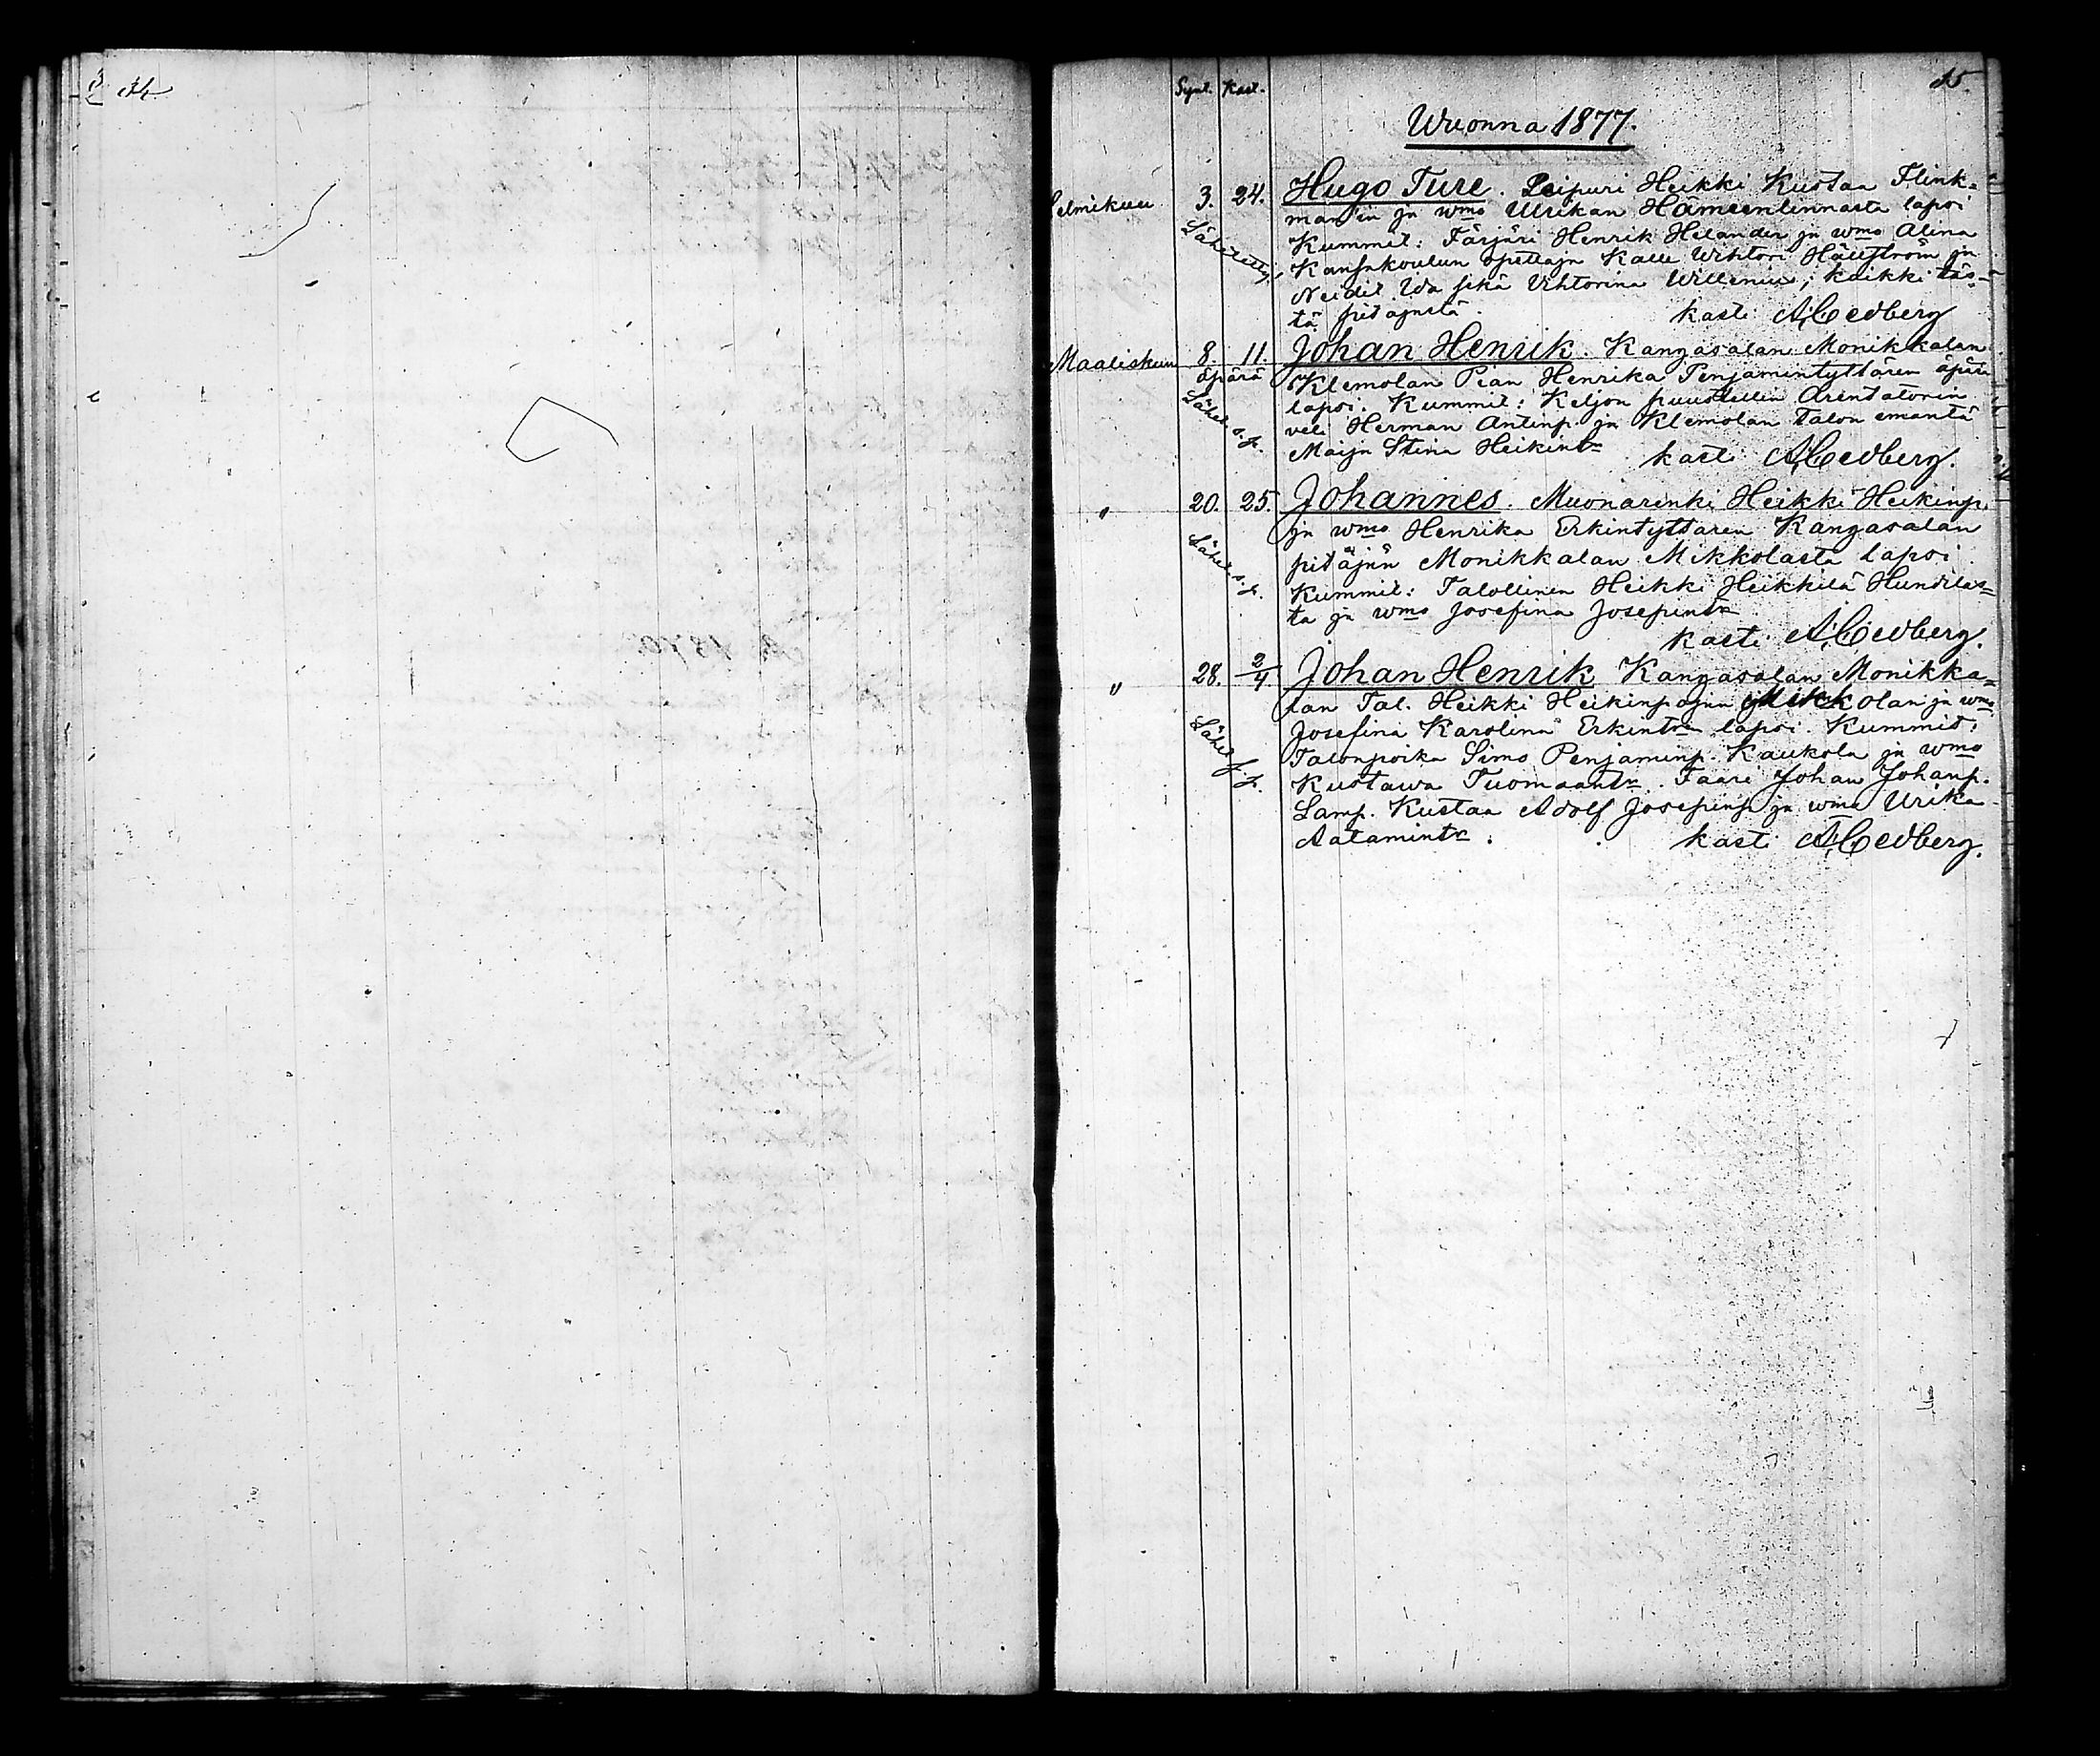 34
15.
Synt. Kast.
Wuonna 1877.
Helmikuu 3. 24. Hugo Ture. Leipuri Heikki Kustaa Flink=
man'in ja wmo Ulrikan Hämeenlinnasta lapsi
Lähetetty. Kummit: Färjäri Henrik Helander ja wmo Alina
Kansakoulun opettaja Kalle Wihtori Hällström ja
Neidit Ida sekä Vihtorina Willenius; kaikki täs=
tä pitäjästä. kasti A. Cedberg
Maaliskuu 8. 11. Johan Henrik. Kangasalan Monikkalan
äpärä Klemolan Pian Henrika Penjamintyttären äpärä
Lähet. s. k. lapsi. Kummit: Keljon puustellin Arentatorin
veli Herman Antinp. ja Klemolan talon emäntä
Maija Stina Heikintr kasti A. Cedberg.
" 20. 25. Johannes. Muonarenki Heikki Heikinp.
ja wmo Henrika Erkintyttären Kangasalan
Lähet. s. k. pitäjän Monikkalan Mikkolasta lapsi
Kummit: Talollinen Heikki Heikkilä Hundilas=
ta ja wmo Josefina Josepintr
kasti A. Cedberg.
" 28. 2/4. Johan Henrik Kangasalan Monikka=
lan Tal. Heikki Heikinpojan Mikkolan ja wmo
Lähet. s. k. Josefina Karolina Erkintr lapsi. Kummit:
Talonpoika Simo Penjaminp. Kaukola ja wmo
Kustawa Tuomaantr. Faari Johan Johanp.
Lamp. Kustaa Adolf Josepinp ja wmo Urika
Aatamintr. kasti A. Cedberg.